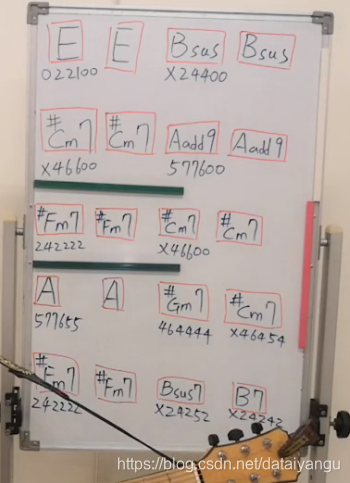 E E Bsus Bsus
022100 X24400
#Cm7 #Cm7 Aadd9 Aadd9
X46600 577600
#Fm7 #Fm7 #Cm7 #Cm7
242222 X46600
A A #Gm7 #Cm7
577655 464444 X46454
#Fm7 #Fm7 Bsus7 B7
242222 X24252 X24242
https://blog.csdn.net/dataiyangu